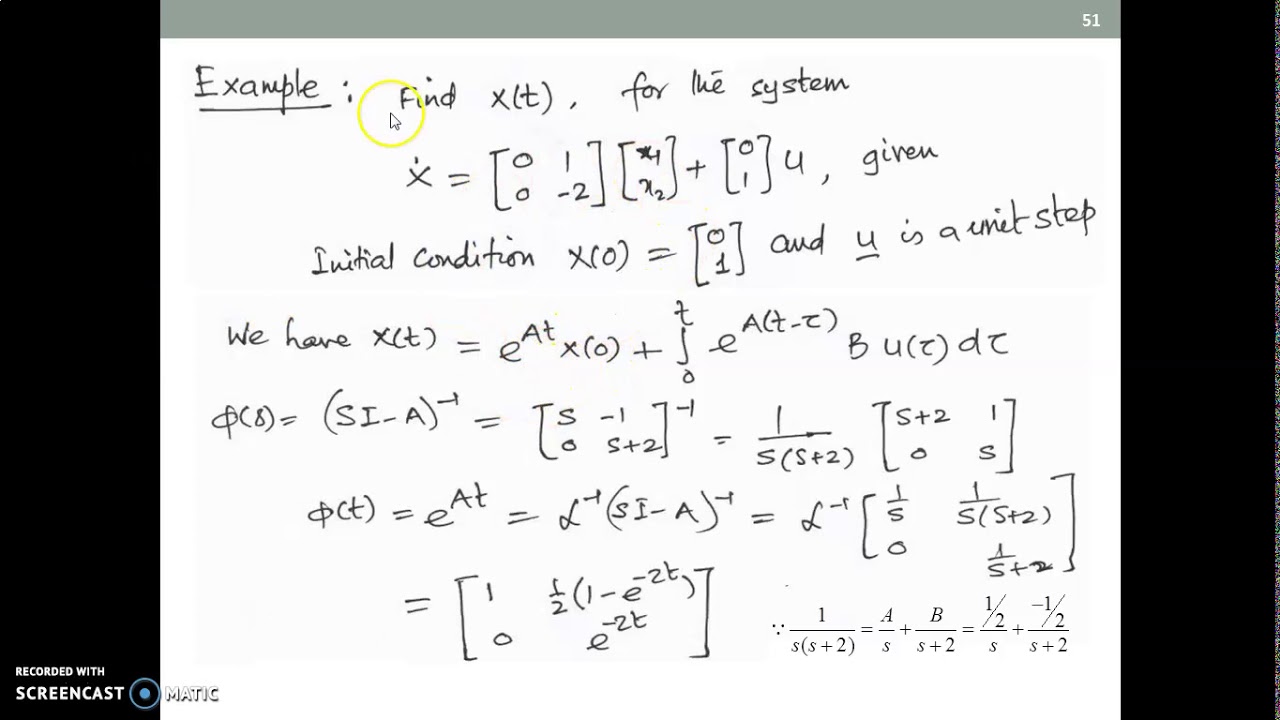 51
Example : Find x(t), for the system
ẋ = [0 1; 0 -2] [x1; x2] + [0; 1] u, given
Initial condition x(0) = [0; 1] and u is a unit step
We have x(t) = e^{At} x(0) + ∫_0^t e^{A(t-τ)} B u(τ) dτ
Φ(s) = (SI-A)^{-1} = [S -1; 0 S+2]^{-1} = 1/(S(S+2)) [S+2 1; 0 S]
Φ(t) = e^{At} = ℒ^{-1}(SI-A)^{-1} = ℒ^{-1} [1/S 1/(S(S+2)); 0 1/(S+2)]
= [1 1/2(1-e^{-2t}); 0 e^{-2t}]
∵ 1/(s(s+2)) = A/s + B/(s+2) = (1/2)/s + (-1/2)/(s+2)
RECORDED WITH
SCREENCAST MATIC